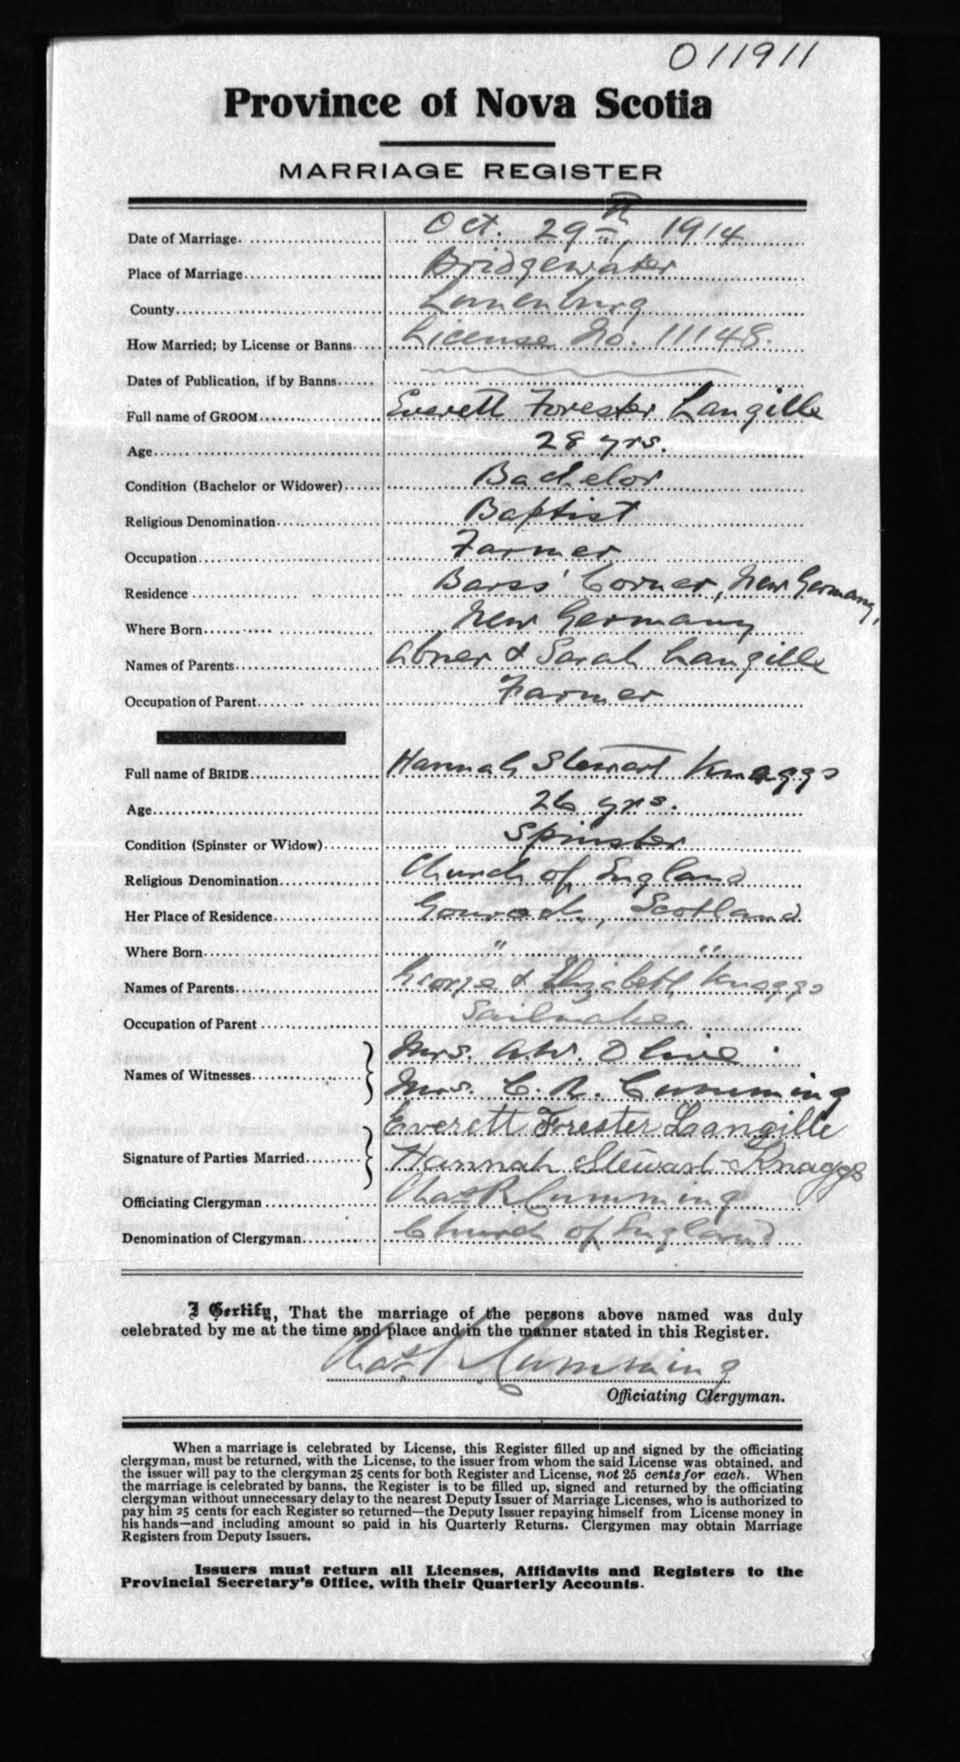 011911
Province of Nova Scotia
MARRIAGE REGISTER
Date of Marriage. Oct. 29th, 1914
Place of Marriage Bridgewater
County Lunenburg
How Married; by License or Banns License No. 11148.
Dates of Publication, if by Banns
Full name of GROOM Everett Forester Langille
Age 28 yrs.
Condition (Bachelor or Widower) Bachelor
Religious Denomination Baptist
Occupation Farmer
Residence Barss' Corner, New Germany,
Where Born New Germany
Names of Parents Abner & Sarah Langille
Occupation of Parent Farmer
Full name of BRIDE Hannah Stewart Knaggs
Age 26 yrs.
Condition (Spinster or Widow) Spinster
Religious Denomination Church of England
Her Place of Residence Gourock, Scotland
Where Born " "
Names of Parents George & Elizabeth Knaggs
Occupation of Parent Sailmaker
Names of Witnesses Mrs. A.W. Olive
Mrs. C. R. Cumming
Everett Forester Laangille
Signature of Parties Married Hannah Stewart Knaggs
Officiating Clergyman Chas R Cumming
Denomination of Clergyman Church of England
I Certify, That the marriage of the persons above named was duly
celebrated by me at the time and place and in the manner stated in this Register.
Chas. R Cumming
Officiating Clergyman.
When a marriage is celebrated by License, this Register filled up and signed by the officiating
clergyman, must be returned, with the License, to the issuer from whom the said License was obtained, and
the issuer will pay to the clergyman 25 cents for both Register and License, not 25 cents for each. When
the marriage is celebrated by banns, the Register is to be filled up, signed and returned by the officiating
clergyman without unnecessary delay to the nearest Deputy Issuer of Marriage Licenses, who is authorized to
pay him 25 cents for each Register so returned—the Deputy Issuer repaying himself from License money in
his hands—and including amount so paid in his Quarterly Returns. Clergymen may obtain Marriage
Registers from Deputy Issuers.
Issuers must return all Licenses, Affidavits and Registers to the
Provincial Secretary's Office, with their Quarterly Accounts.